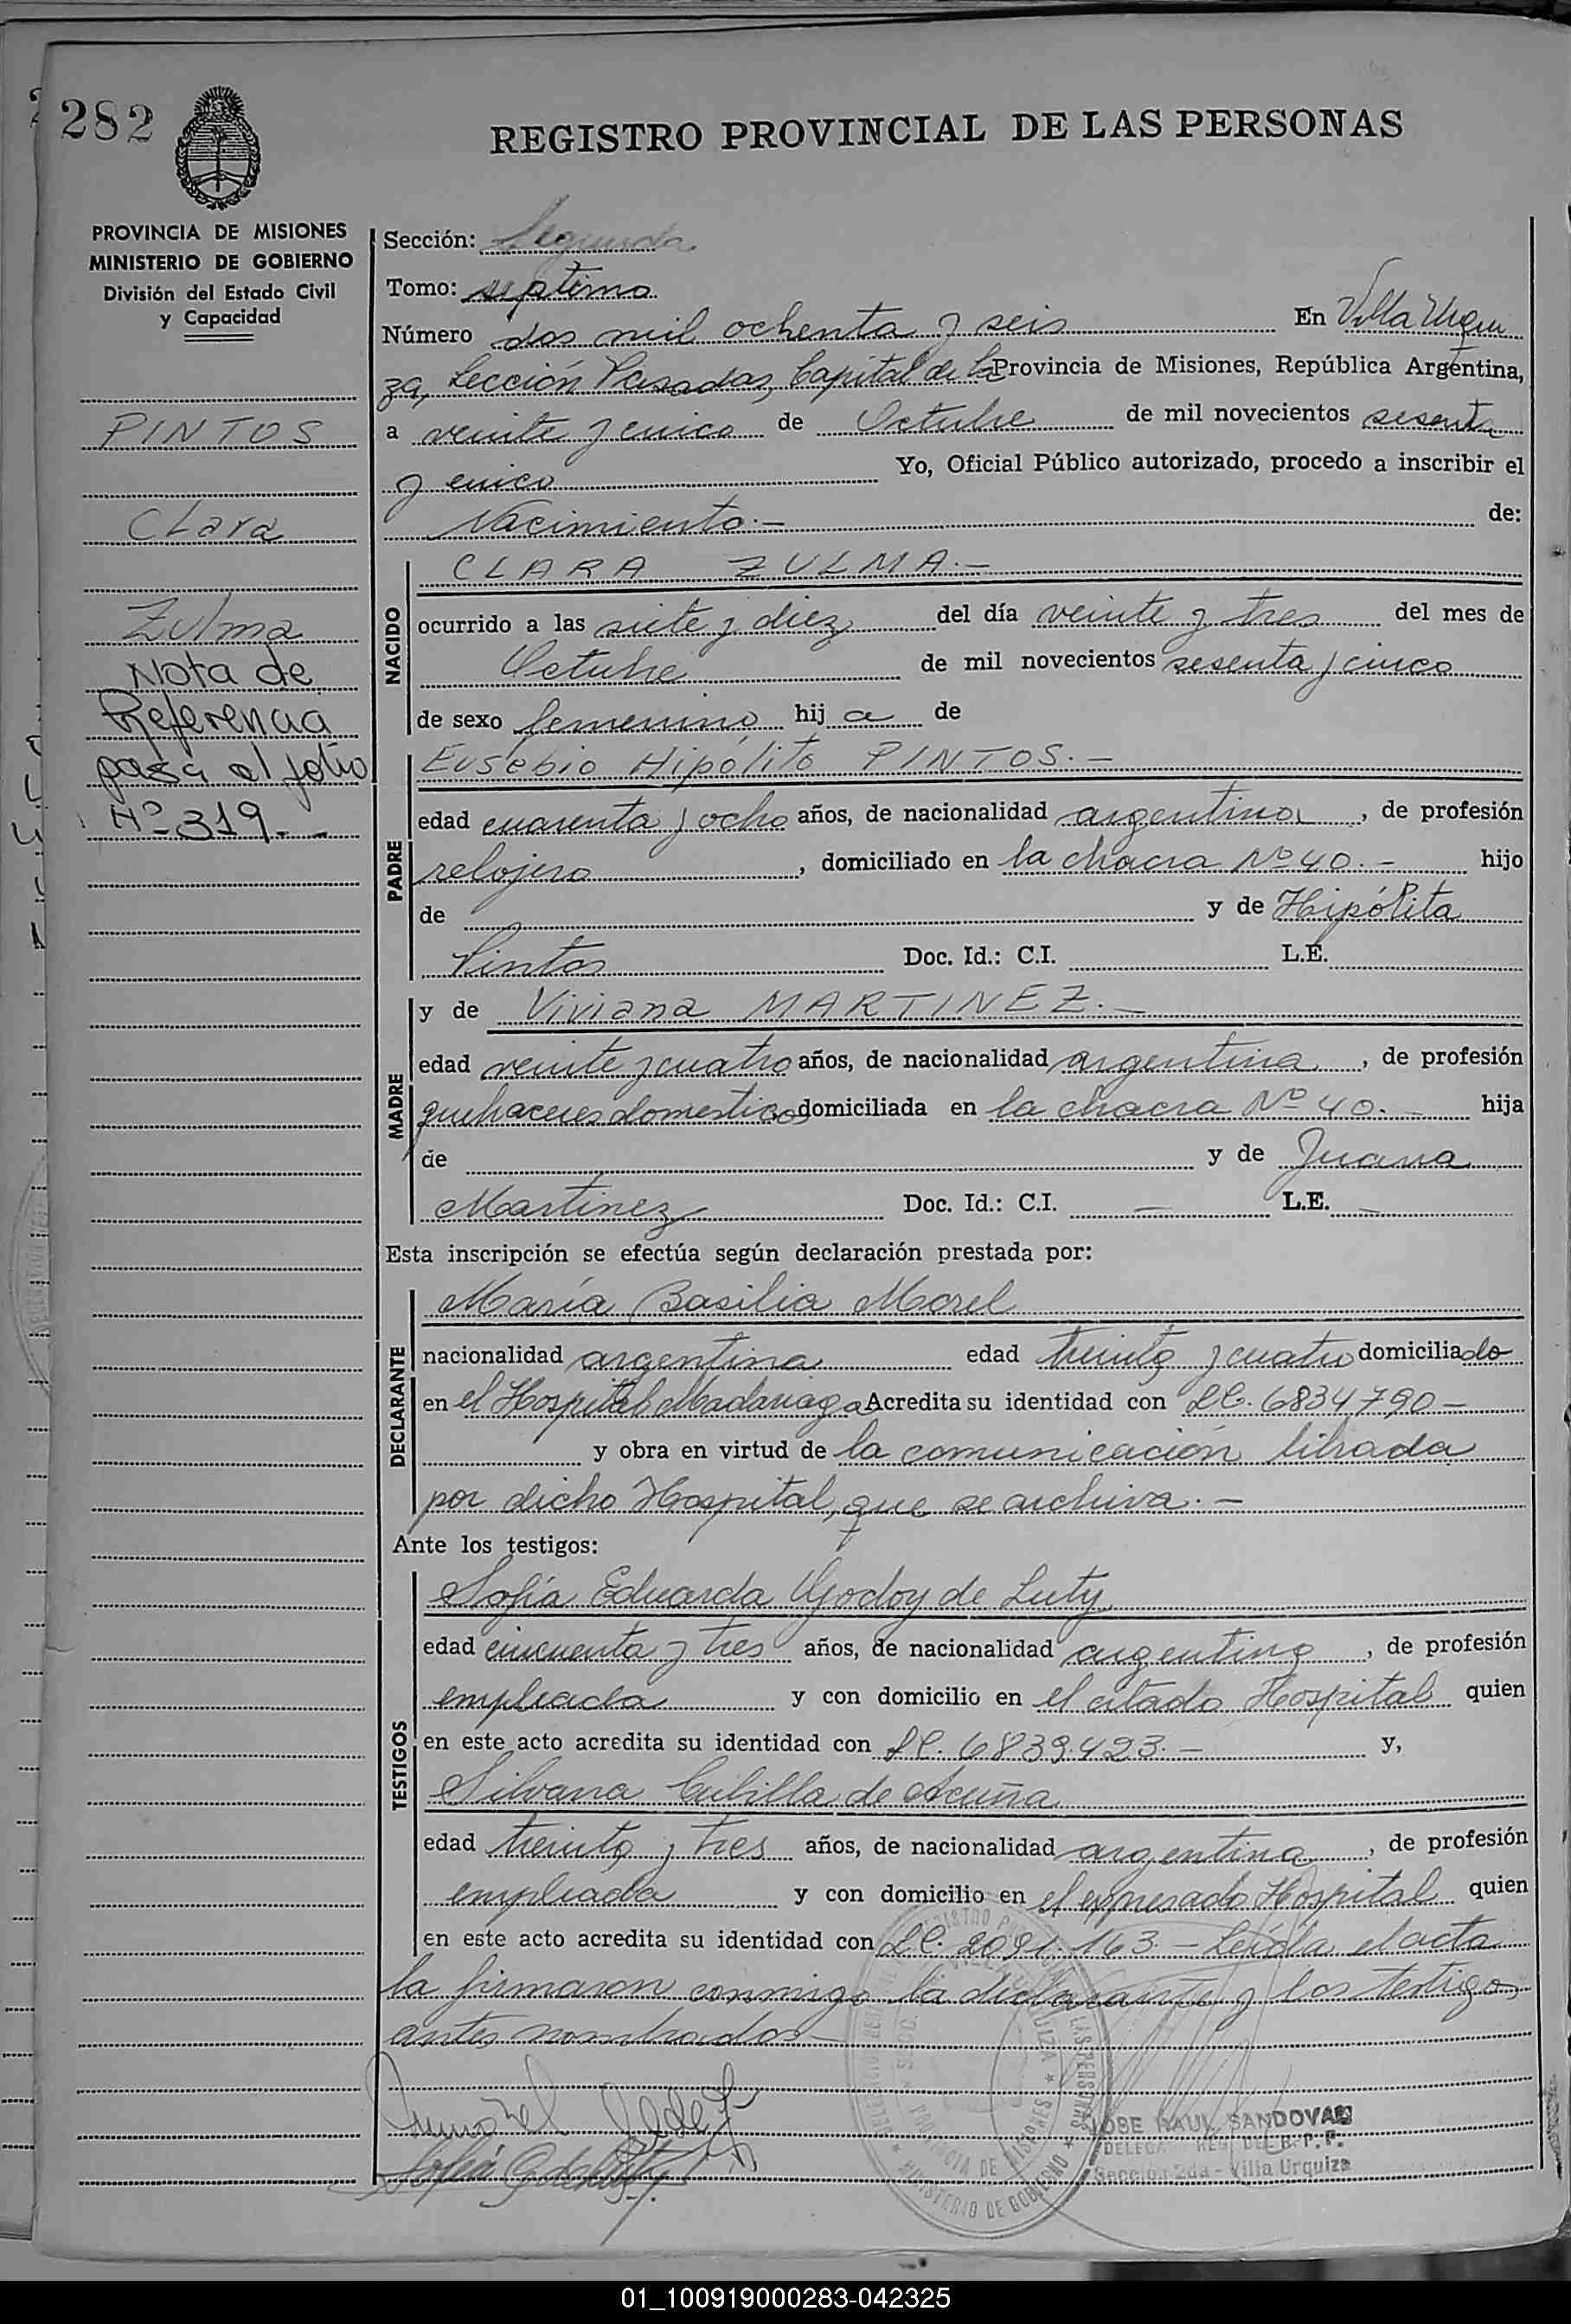 282
REGISTRO PROVINCIAL DE LAS PERSONAS
PROVINCIA DE MISIONES
MINISTERIO DE GOBIERNO
División del Estado Civil
y Capacidad
PINTOS
Clara
Zulma
Nota de
Referencia
pasa al folio
Nº 319.-
Sección: Segunda
Tomo: septimo
Número dos mil ochenta y seis En Villa Urqui
za, Sección Posadas, Capital de la Provincia de Misiones, República Argentina,
a veinte y cinco de Octubre de mil novecientos sesenta
y cinco Yo, Oficial Público autorizado, procedo a inscribir el
Nacimiento.- de:
NACIDO
CLARA ZULMA.-
ocurrido a las siete y diez del día veinte y tres del mes de
Octubre de mil novecientos sesenta y cinco
de sexo femenino hija de
PADRE
Eusebio Hipólito PINTOS.-
edad cuarenta y ocho años, de nacionalidad argentina, de profesión
relojero, domiciliado en la chacra Nº 40.- hijo
de y de Hipólita
Pintos Doc. Id.: C.I. L.E.
MADRE
y de Viviana MARTINEZ.-
edad veinte y cuatro años, de nacionalidad argentina, de profesión
quehaceres domesticos domiciliada en la chacra Nº 40.- hija
de y de Juana
Martinez Doc. Id.: C.I. — L.E. —
Esta inscripción se efectúa según declaración prestada por:
DECLARANTE
María Basilia Morel
nacionalidad argentina edad treinta y cuatro domiciliado
en el Hospital Madariaga Acredita su identidad con LC. 6834790-
y obra en virtud de la comunicación librada
por dicho Hospital, que se archiva.-
Ante los testigos:
TESTIGOS
Sofía Eduarda Godoy de Luty
edad cincuenta y tres años, de nacionalidad argentina, de profesión
empleada y con domicilio en el citado Hospital quien
en este acto acredita su identidad con LC. 6839.423.- y,
Silvana Cubilla de Acuña
edad treinta y tres años, de nacionalidad argentina, de profesión
empleada y con domicilio en el expresado Hospital quien
en este acto acredita su identidad con LC. 2091.163.- Leída el acta
la firmaron conmigo la declarante y los testigos
antes nombrados
JOSE RAUL SANDOVAL
Sección 2da - Villa Urquiza
PROVINCIA DE MISIONES
MINISTERIO DE GOBIERNO
01_100919000283-042325